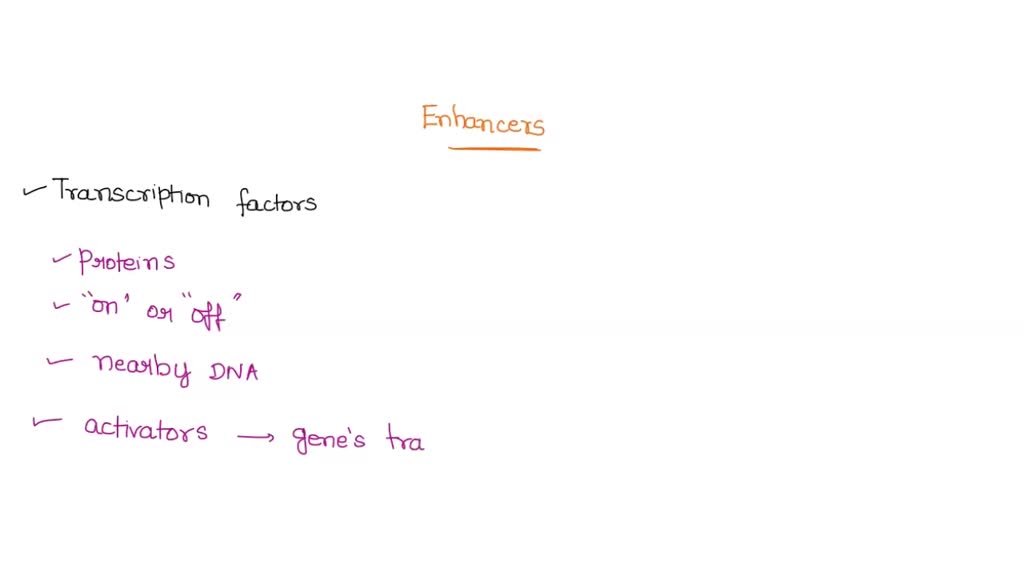 Enhancers
✓ Transcription factors
✓ Proteins
✓ "on" or "off"
✓ nearby DNA
✓ activators → gene's tra